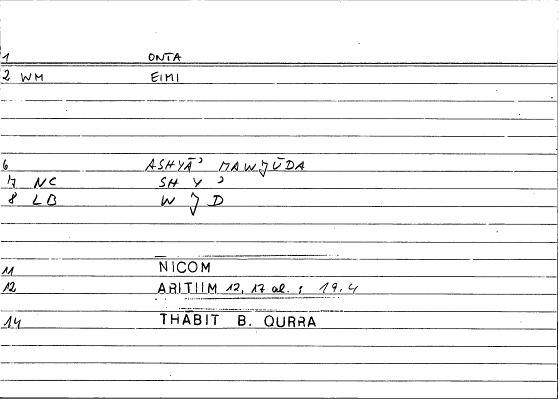 1 ONTA
2 WM EIMI
6 ASHYĀʾ MAWJŪDA
7 NC SH Y ʾ
8 LB W J D
11 NICOM
12 ARITIIM 12, 17 al. ; 19.4
14 THĀBIT B. QURRA